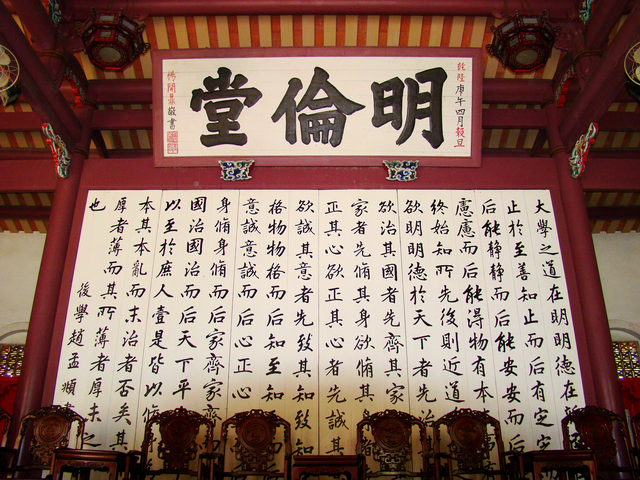 明倫堂
乾隆庚午四月穀旦
楊開鼎敬書
大學之道在明明德在
止於至善知止而后有定
后能靜靜而后能安安而后
慮慮而后能得物有本
終始知所先後則近道
欲明明德於天下者先治
欲治其國者先齊其家
家者先脩其身欲脩其身
正其心欲正其心者先誠
欲誠其意者先致其知致知
格物物格而后知至知
意誠意誠而后心正心
身脩身脩而后家齊家齊
國治國治而后天下平
以至於庶人壹是皆以脩
本其本亂而末治者否矣其
厚者薄而其所薄者厚未之
也
後學趙孟頫